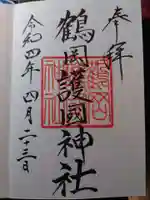 奉拝
鶴岡護國神社
令和四年四月二十三日